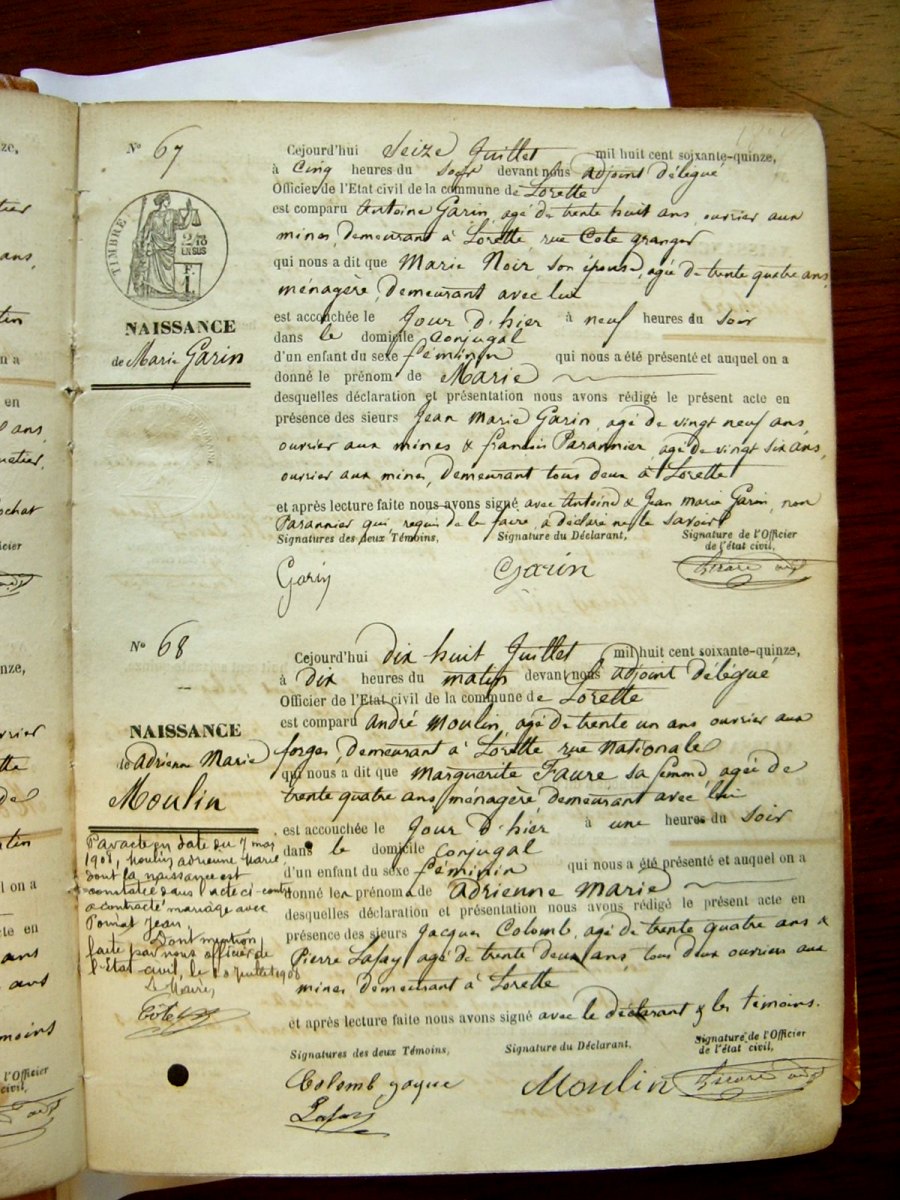 N° 67
TIMBRE
2/10
EN SUS
F.
1
NAISSANCE
de Marie Garin
Cejourd'hui seize Juillet mil huit cent soixante-quinze,
à Cinq heures du soir devant nous adjoint délégué
Officier de l'Etat civil de la commune de Lorette
est comparu Antoine Garin, agé de trente huit ans, ouvrier aux
mines, demeurant à Lorette, rue Cote granger
qui nous a dit que Marie Noir, son épouse, agée de trente quatre ans,
ménagère, demeurant avec lui
est accouchée le Jour d'hier à neuf heures du soir
dans le domicile conjugal
d'un enfant du sexe féminin qui nous a été présenté et auquel on a
donné le prénom de Marie
desquelles déclaration et présentation nous avons rédigé le présent acte en
présence des sieurs Jean Marie Garin, agé de vingt neuf ans,
ouvrier aux mines & francis Parannier, agé de vingt six ans,
ouvrier aux mines, demeurant tous deux à Lorette
et après lecture faite nous avons signé avec Antoine & Jean Marie Garin, non
Parannier qui, requis de le faire, a déclaré ne le savoir
Signatures des deux Témoins, Signature du Déclarant, Signature de l'Officier
de l'état civil,
Garin Garin
N° 68
NAISSANCE
de Adrienne Marie
Moulin
Par acte en date du 7 mai
1908, Moulin adrienne Marie
dont la naissance est
constatée dans l'acte ci-contre
a contracté mariage avec
Jean.
Dont mention
faite par nous officier de
l'Etat-civil, le Juillet 1908
Le Maire,
Cejourd'hui dix huit Juillet mil huit cent soixante-quinze,
à dix heures du matin devant nous adjoint délégué
Officier de l'Etat civil de la commune de Lorette
est comparu André Moulin, agé de trente un ans ouvrier aux
forges, demeurant à Lorette rue Nationale
qui nous a dit que Marguerite Faure sa femme, agée de
trente quatre ans, ménagère, demeurant avec lui
est accouchée le Jour d'hier à une heures du soir
dans le domicile conjugal
d'un enfant du sexe féminin qui nous a été présenté et auquel on a
donné les prénom de Adrienne Marie
desquelles déclaration et présentation nous avons rédigé le présent acte en
présence des sieurs Jacques Colomb, agé de trente quatre ans &
Pierre Lafay, agé de trente deux ans, tous deux ouvriers aux
mines demeurant à Lorette
et après lecture faite nous avons signé avec le déclarant & les témoins.
Signatures des deux Témoins, Signature du Déclarant, Signature de l'Officier
de l'état civil,
Colomb Moulin
Lafay